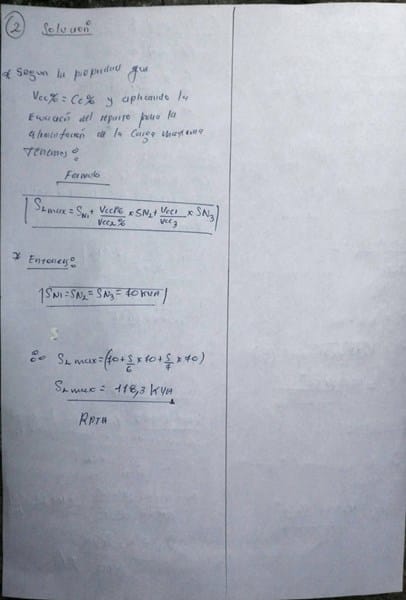 2 Solución
* Segun la propiedad que
Vcc% = Cc% y aplicando la
Ecuación del reparto para la
alimentación de la Carga maxima
Tenemos:
Formula
SLmax = SN1 + Vcc1%/Vcc2% x SN2 + Vcc1/Vcc3 x SN3
* Entonces:
SN1 = SN2 = SN3 = 70 KVA
∴ SL max = (70 + 5/6 x 70 + 5/7 x 70)
SL max = 178,3 KVA
RPTA